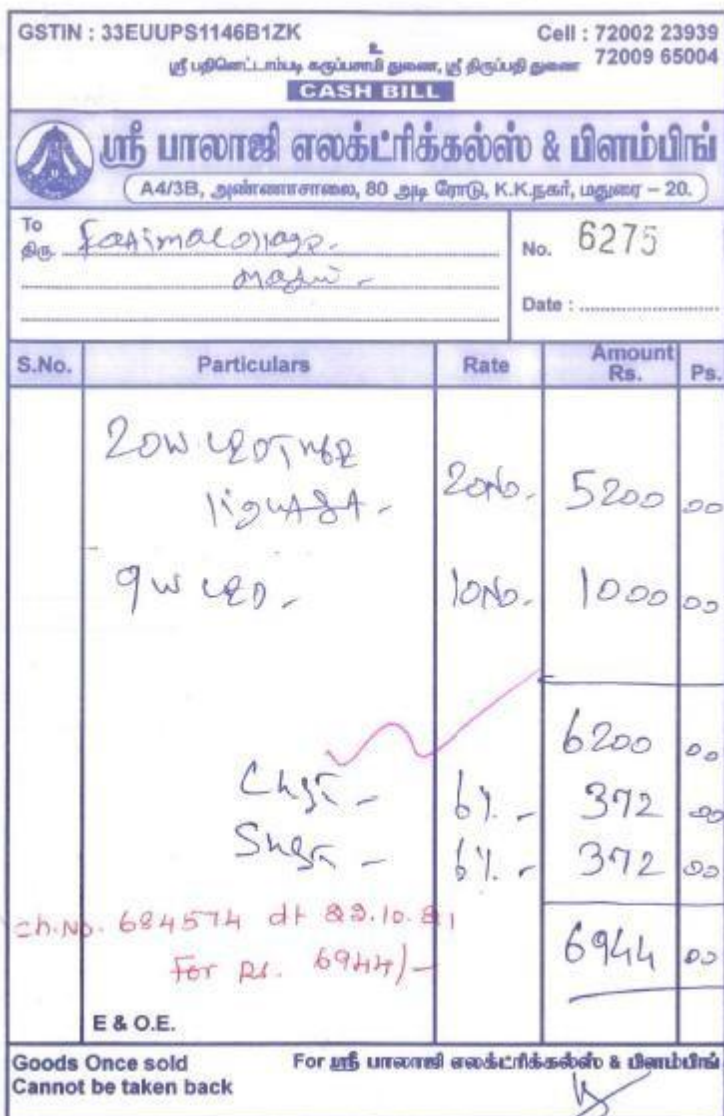 GSTIN : 33EUUPS1146B1ZK
உ
Cell : 72002 23939
72009 65004
ஸ்ரீ பதினெட்டாம்படி கருப்பசாமி துணை, ஸ்ரீ திருப்பதி துணை
CASH BILL
ஸ்ரீ பாலாஜி எலக்ட்ரிக்கல்ஸ் & பிளம்பிங்
A4/3B, அண்ணாசாலை, 80 அடி ரோடு, K.K.நகர், மதுரை – 20.
To
திரு.
No. 6275
Date :
S.No. Particulars Rate Amount Rs. Ps.
20W
20No. 5200 00
9W LED 10No. 1000 00
6200 00
6% 372 00
6% 372 00
ch.No. 684574 dt
For Rs. 6944/-
6944 00
E & O.E.
Goods Once sold
Cannot be taken back
For ஸ்ரீ பாலாஜி எலக்ட்ரிக்கல்ஸ் & பிளம்பிங்